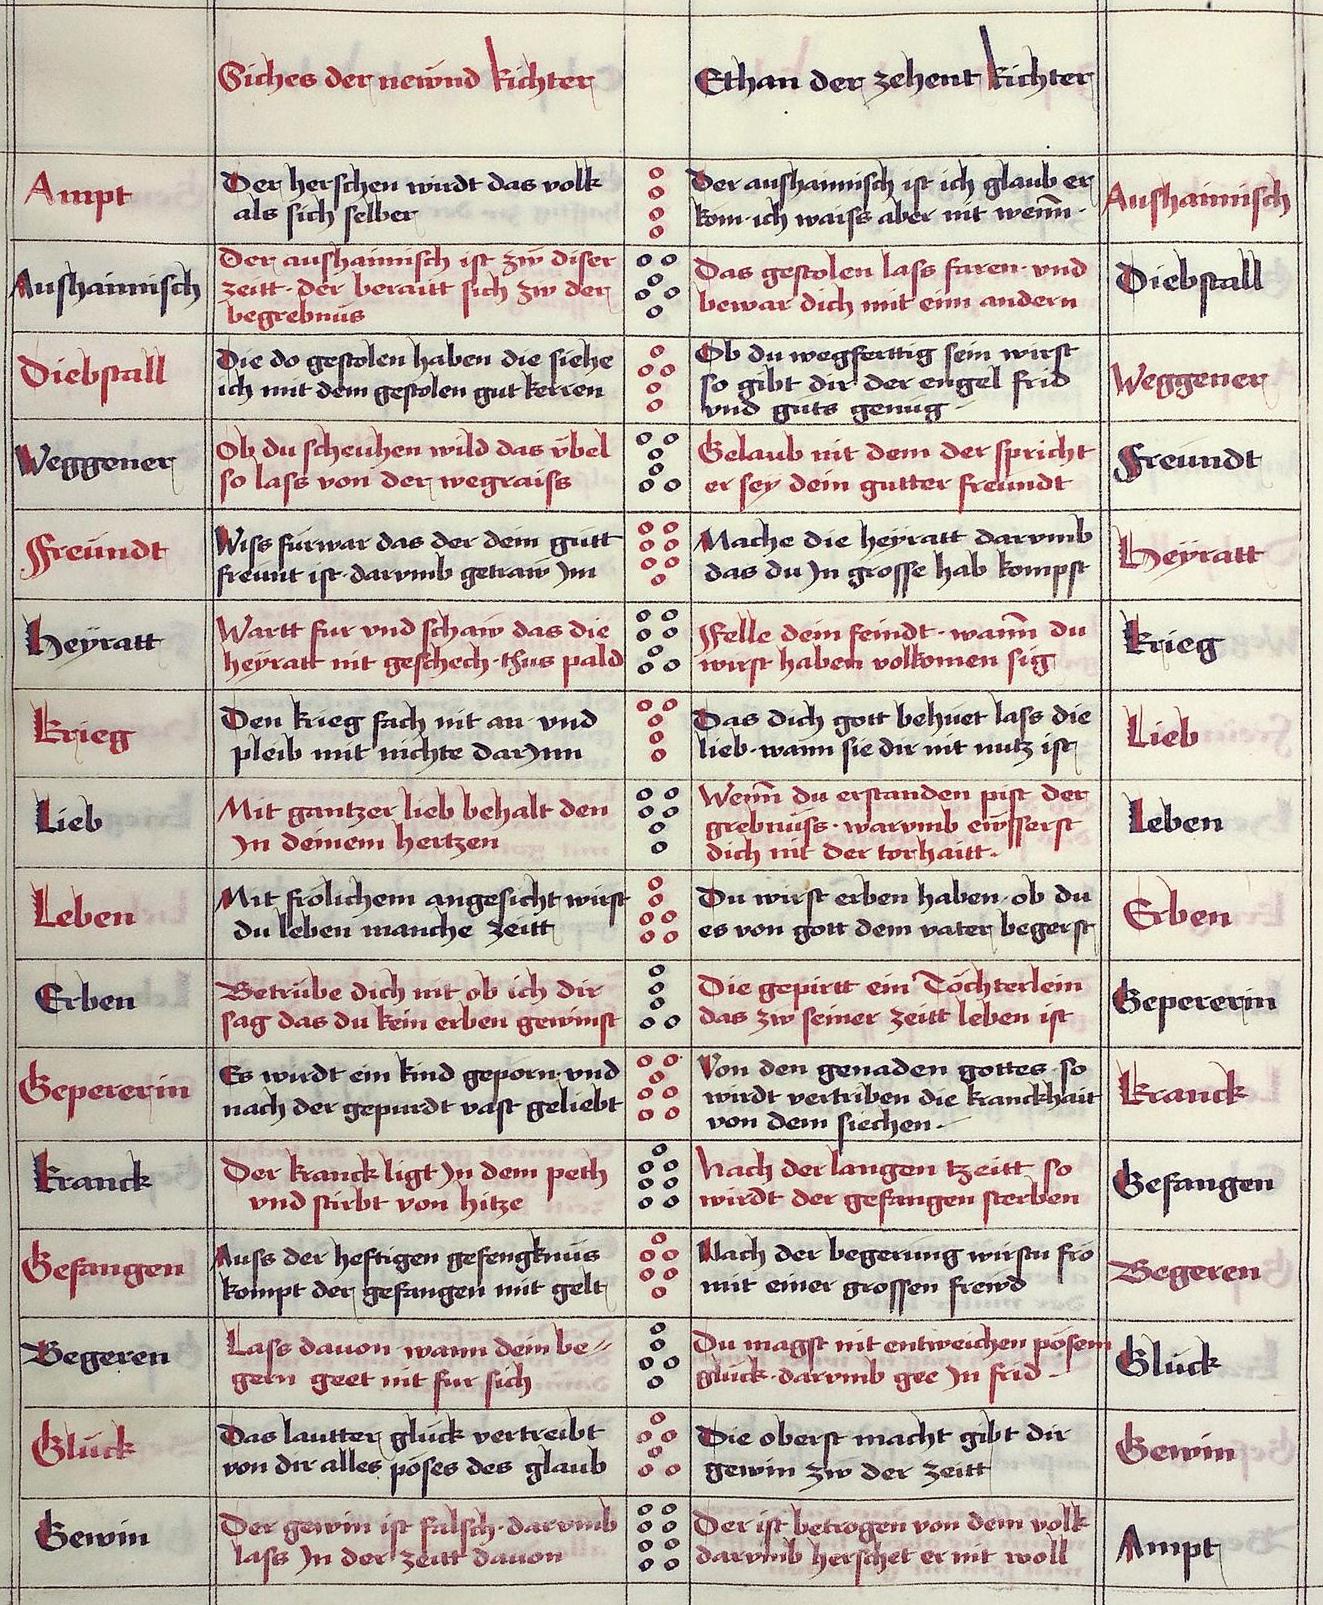 Siches der newnd Richter
Ethan der zehent Richter
Ampt
Der herschen wirdt das volk
als sich selber
Der aushaimisch ist ich glaub er
kom· ich waiss aber nit wenn·
Aushaimisch
Aushaimisch
Der aushaimisch ist zw diser
zeitt· der beraitt sich zw der
begrebnüs
Das gestolen lass faren· vnd
bewar dich mit eim andern
Diebstall
Diebstall
Die do gestolen haben die siehe
ich mit dem gestolen gut kerren
Ob du wegferttig sein wirst
so gibt dir der engel frid
vnd güts genüg
Weggener
Weggener
Ob du scheuhen wild das vbel
so lass von der wegraiss
Gelaub nit dem der spricht
er sey dein gutter freündt
Freündt
Freündt
Wiss fürwar das der dein gütt
freünt ist· darvmb getraw Im
Mache die heyratt darvmb
das du In grosse hab kompst
Heyratt
Heyratt
Wartt für vnd schaw das die
heyratt nit geschech· thus pald
Felle dein feindt· wann du
wirst haben volkomen sig
Krieg
Krieg
Den krieg fach nit an vnd
pleib mit nichte darInn
Das dich gott behüet lass die
lieb· wann sie dir nit nutz ist
Lieb
Lieb
Mit gantzer lieb behalt den
In deinem hertzen
Wenn du erstanden pist der
grebnüss· warvmb ewsserst
dich nit der torhaitt·
Leben
Leben
Mit frölichem angesicht wirst
du leben manche zeitt
Du wirst erben haben· ob du
es von gott dem vater begerst
Erben
Erben
Betrübe dich nit ob ich dir
sag das du kein erben gewinst
Die gepirtt ein Töchterlein
das zw seiner zeitt leben ist
Gepererin
Gepererin
Es wirdt ein kind geporn· vnd
nach der gepurdt vast geliebt
Von den genaden gottes so
wirdt vertriben die kranckhait
von dem siechen·
Kranck
Kranck
Der kranck ligt In dem peth
vnd stirbt von hitze
Nach der langen tzeitt so
wirdt der gefangen sterben
Gefangen
Gefangen
Auss der heftigen gefengknüs
kompt der gefangen mit gelt
Nach der begerüng wirstu fro
mit einer grossen frewd
Begeren
Begeren
Lass dauon wann dein be//
gern geet nit für sich
Du magst nit entweichen pösem
glück· darvmb gee In frid
Glück
Glück
Das lautter glück vertreibt
von dir alles pöses des glaub
Die oberst macht gibt dir
gewin zw der zeitt
Gewin
Gewin
Der gewin ist falsch· darvmb
lass In der zeitt dauon
Der ist betrogen von dem volk
darvmb herschet er nit woll
Ampt